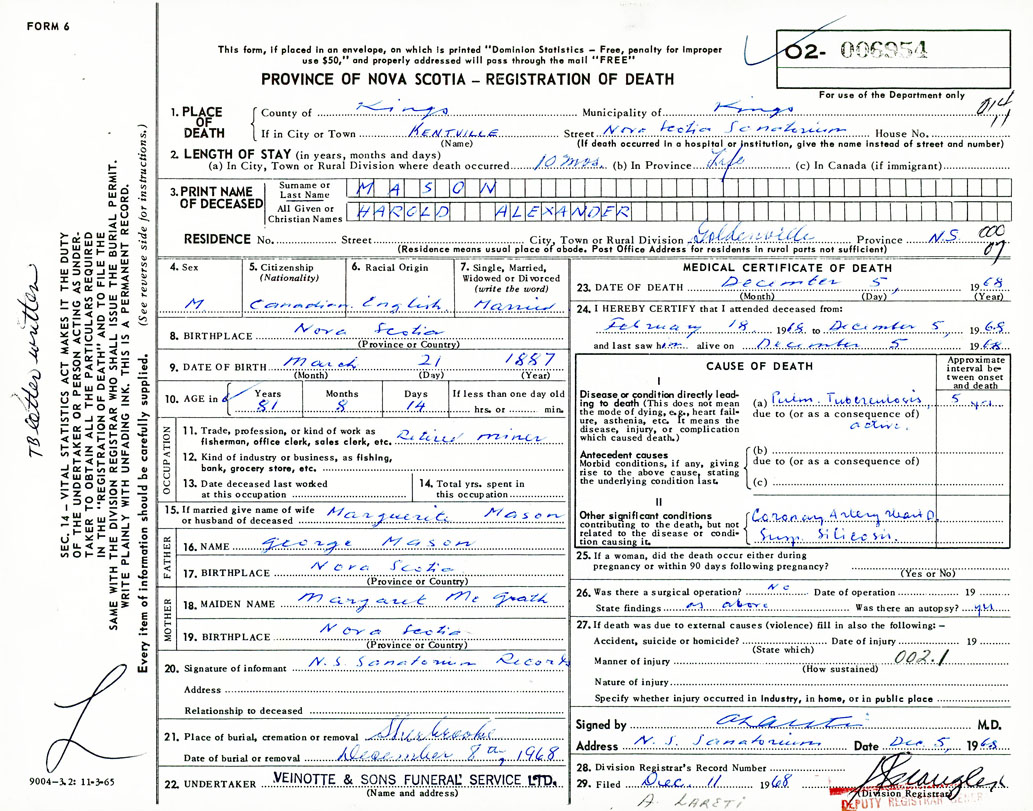 FORM 6
This form, if placed in an envelope, on which is printed "Dominion Statistics – Free, penalty for improper
use $50," and properly addressed will pass through the mail "FREE"
PROVINCE OF NOVA SCOTIA – REGISTRATION OF DEATH
O2- 006954
For use of the Department only
014
11
1. PLACE OF DEATH
County of Kings Municipality of Kings
If in City or Town KENTVILLE Street Nova Scotia Sanatorium House No.
(Name) (If death occurred in a hospital or institution, give the name instead of street and number)
2. LENGTH OF STAY (in years, months and days)
(a) In City, Town or Rural Division where death occurred 10 mos. (b) In Province Life (c) In Canada (if immigrant)
3. PRINT NAME OF DECEASED
Surname or Last Name MASON
All Given or Christian Names HAROLD ALEXANDER
RESIDENCE No. Street City, Town or Rural Division Goldenville Province N.S.
000
07
(Residence means usual place of abode. Post Office Address for residents in rural parts not sufficient)
4. Sex
M.
5. Citizenship
(Nationality)
Canadian
6. Racial Origin
English
7. Single, Married,
Widowed or Divorced
(write the word)
Married
8. BIRTHPLACE Nova Scotia
(Province or Country)
9. DATE OF BIRTH March 21 1887
(Month) (Day) (Year)
10. AGE in
Years Months Days If less than one day old
81 8 14 hrs. or min.
OCCUPATION
11. Trade, profession, or kind of work as
fisherman, office clerk, sales clerk, etc. Retired miner
12. Kind of industry or business, as fishing,
bank, grocery store, etc.
13. Date deceased last worked
at this occupation
14. Total yrs. spent in
this occupation
15. If married give name of wife
or husband of deceased Marguerite Mason
FATHER
16. NAME George Mason
17. BIRTHPLACE Nova Scotia
(Province or Country)
MOTHER
18. MAIDEN NAME Margaret McGrath
19. BIRTHPLACE Nova Scotia
(Province or Country)
20. Signature of informant N.S. Sanatorium Records
Address
Relationship to deceased
21. Place of burial, cremation or removal Sherbrooke
Date of burial or removal December 8th, 1968
22. UNDERTAKER VEINOTTE & SONS FUNERAL SERVICE LTD.
(Name and address)
MEDICAL CERTIFICATE OF DEATH
23. DATE OF DEATH December 5, 1968
(Month) (Day) (Year)
24. I HEREBY CERTIFY that I attended deceased from:
February 18 1968 to December 5, 1968
and last saw him alive on December 5 1968
CAUSE OF DEATH
Approximate
interval be-
tween onset
and death
I
Disease or condition directly lead-
ing to death (This does not mean
the mode of dying, e.g., heart fail-
ure, asthenia, etc. It means the
disease, injury, or complication
which caused death.)
(a) Pulm. Tuberculosis, 5 yrs.
due to (or as a consequence of)
active.
Antecedent causes
Morbid conditions, if any, giving
rise to the above cause, stating
the underlying condition last.
(b)
due to (or as a consequence of)
(c)
II
Other significant conditions
contributing to the death, but not
related to the disease or condi-
tion causing it.
Coronary Artery Heart D.
Susp. Silicosis.
25. If a woman, did the death occur either during
pregnancy or within 90 days following pregnancy?
(Yes or No)
26. Was there a surgical operation? No Date of operation 19
State findings as above Was there an autopsy? yes
27. If death was due to external causes (violence) fill in also the following: –
Accident, suicide or homicide? Date of injury 19
(State which)
Manner of injury 002.1
(How sustained)
Nature of injury
Specify whether injury occurred in Industry, in home, or in public place
Signed by M.D.
Address N.S. Sanatorium Date Dec 5, 1968
28. Division Registrar's Record Number
29. Filed Dec. 11 1968
Division Registrar
DEPUTY REGISTRAR
SEC. 14 – VITAL STATISTICS ACT MAKES IT THE DUTY
OF THE UNDERTAKER OR PERSON ACTING AS UNDER-
TAKER TO OBTAIN ALL THE PARTICULARS REQUIRED
IN THE "REGISTRATION OF DEATH" AND TO FILE THE
SAME WITH THE DIVISION REGISTRAR WHO SHALL ISSUE THE BURIAL PERMIT.
WRITE PLAINLY WITH UNFADING INK. THIS IS A PERMANENT RECORD.
Every item of information should be carefully supplied. (See reverse side for instructions.)
TB letter written
9004-3.2: 11-3-65